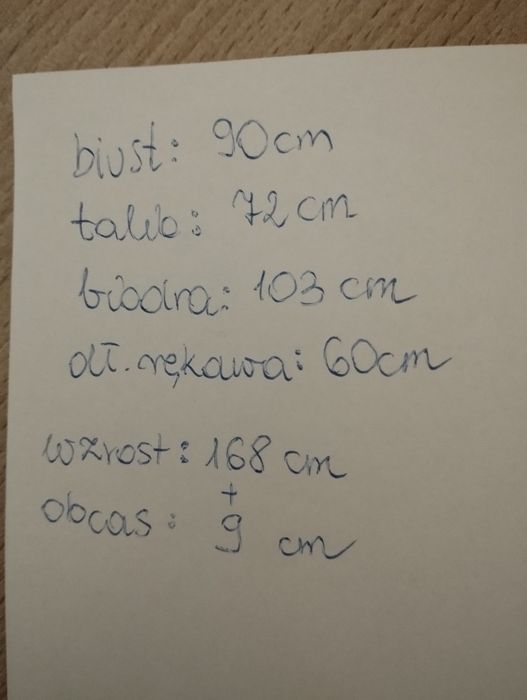 biust: 90cm
talia: 72 cm
biodra: 103 cm
dł. rękawa: 60cm
wzrost: 168 cm
+
obcas: 9 cm